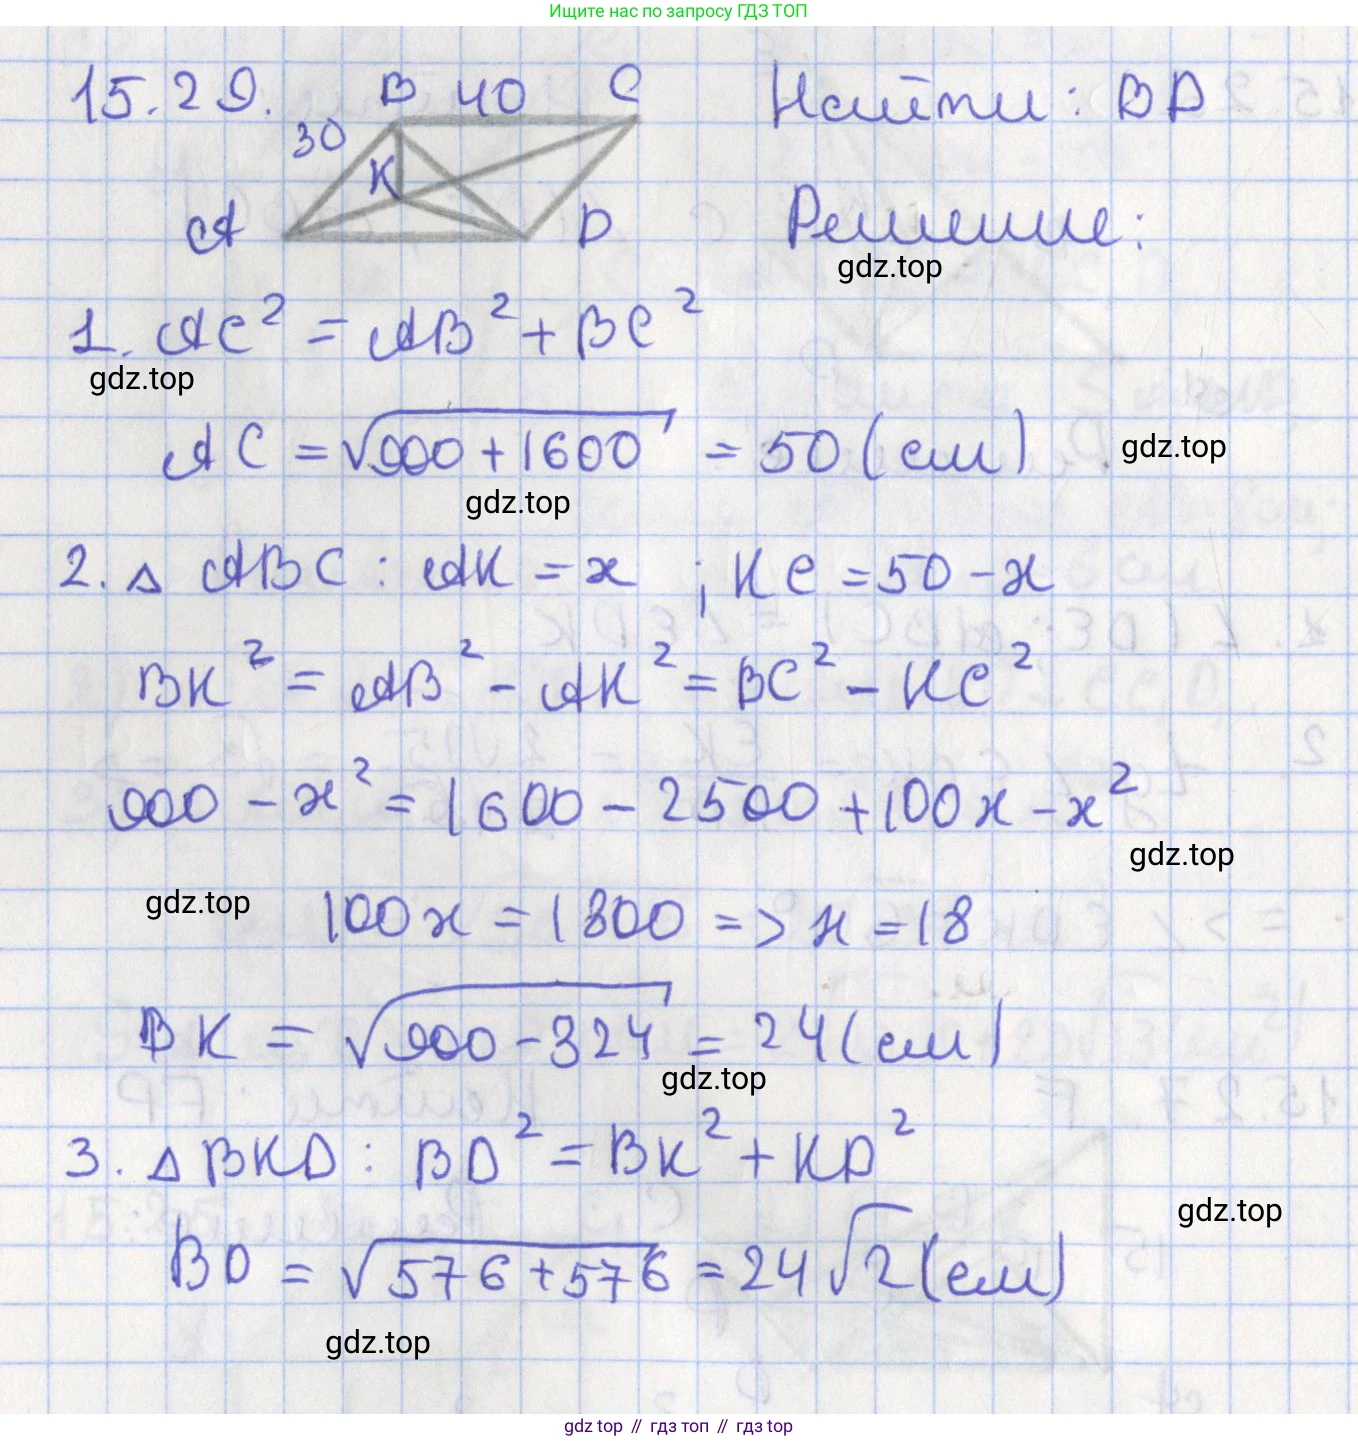 Ищите нас по запросу ГДЗ ТОП
15.29.
B 40 C
30
K
A
D
Найти: BD
Решение:
gdz.top
1. AC² = AB² + BC²
gdz.top
AC = √900 + 1600 = 50 (см)
gdz.top
gdz.top
2. △ ABC : AK = x ; KC = 50 - x
BK² = AB² - AK² = BC² - KC²
900 - x² = 1600 - 2500 + 100x - x²
gdz.top
gdz.top
100x = 1800 => x = 18
BK = √900 - 324 = 24 (см)
gdz.top
3. △ BKD : BD² = BK² + KD²
gdz.top
BD = √576 + 576 = 24√2 (см)
gdz.top
gdz top // гдз топ // gdz top